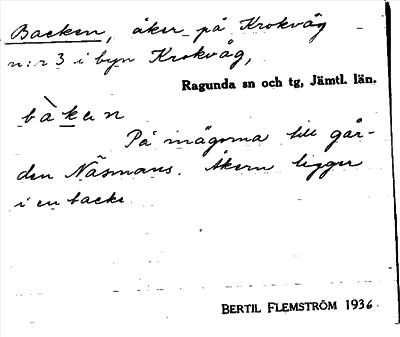 Backen, åker på Krokvåg
n:r 3 i byn Krokvåg,
Ragunda sn och tg, Jämtl. län.
bàken
På inägorna till går-
den Näsmans. Åkern ligger
i en backe
BERTIL FLEMSTRÖM 1936.